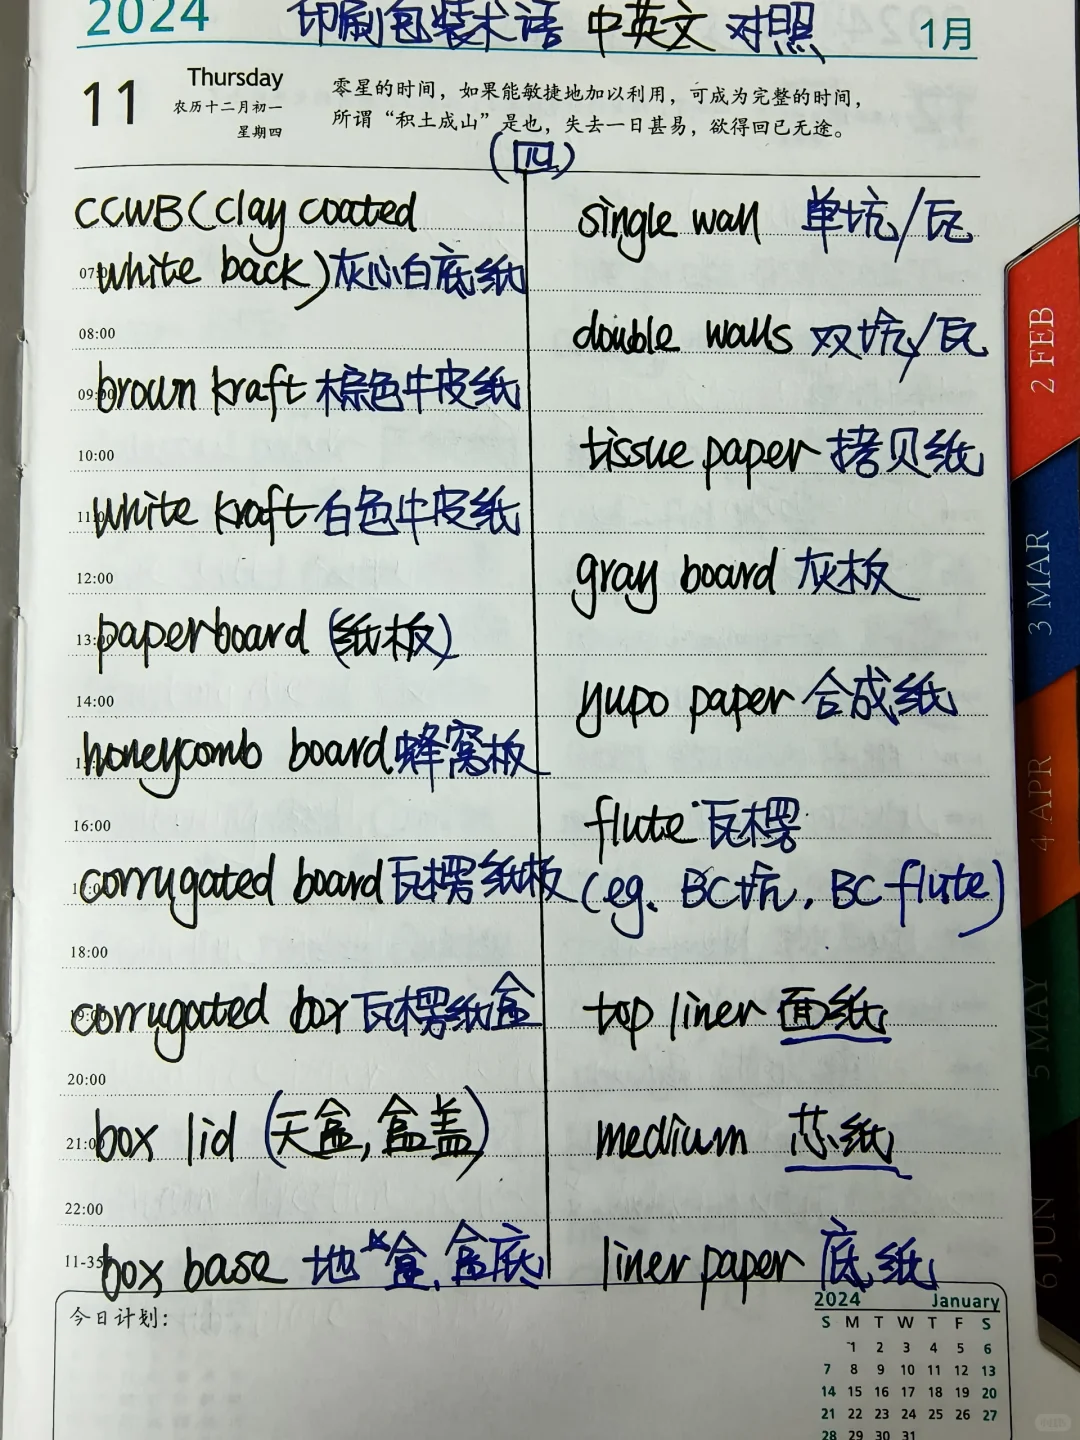 2024 印刷包装术语 中英文 对照 1月
11 Thursday
农历十二月初一
星期四
零星的时间，如果能敏捷地加以利用，可成为完整的时间，
所谓“积土成山”是也，失去一日甚易，欲得回已无途。
(四)
CCWB(clay coated
07:00 white back)灰心白底纸
08:00
09:00 brown kraft 棕色牛皮纸
10:00
11:00 white kraft 白色牛皮纸
12:00
13:00 paperboard (纸板)
14:00
15:00 honeycomb board 蜂窝板
16:00
17:00 corrugated board 瓦楞纸板
18:00
19:00 corrugated box 瓦楞纸盒
20:00
21:00 box lid (天盒,盒盖)
22:00
11-355 box base 地盒,盒底
single wall 单坑/瓦
double walls 双坑/瓦
tissue paper 拷贝纸
gray board 灰板
yupo paper 合成纸
flute 瓦楞
(eg. BC坑, BC flute)
top liner 面纸
medium 芯纸
liner paper 底纸
今日计划：
2024 January
S M T W T F S
1 2 3 4 5 6
7 8 9 10 11 12 13
14 15 16 17 18 19 20
21 22 23 24 25 26 27
28 29 30 31
2 FEB
3 MAR
4 APR
5 MAY
6 JUN